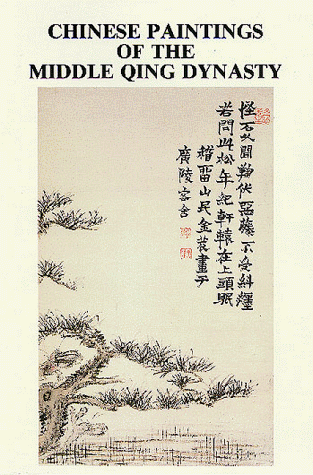 CHINESE PAINTINGS
OF THE
MIDDLE QING DYNASTY
怪石 伏惡藤不受糾纏
若問此松年紀軒轅在上頭眠
稽留山民金農畫于
廣陵客舍